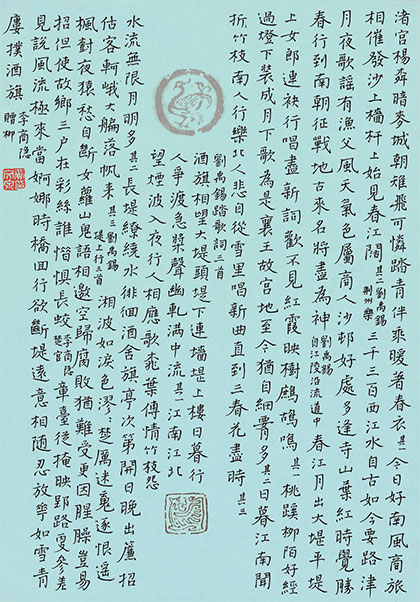 渚宮楊柳暗麥城朝雉飛可憐踏青伴乘暖著春衣 其一 今日好南風商旅
相催發沙上檣杆上始見春江闊 其二 劉禹錫 荊州樂 三千三百西江水自古如今要路津
月夜歌謠有漁父風天氣色屬商人沙邨好處多逢寺山葉紅時覺勝
春行到南朝征戰地古來名將盡為神 劉禹錫 自江陵沿流道中 春江月出大堤平堤
上女郎連袂行唱盡新詞歡不見紅霞映樹鷓鴣鳴 其一 桃蹊柳陌好經
過燈下裝成月下歌為是襄王故宮地至今猶自細腰多 其二 日暮江南聞
折竹枝南人行樂北人悲自從雪里唱新曲直到三春花盡時 其三
劉禹錫踏歌詞三首
酒旗相望大堤頭堤下連檣堤上樓日暮行
人爭渡急槳聲幽軋滿中流 其一 江南江北
望煙波入夜行人相應歌桃葉傳情竹枝怨
水流無限月明多 其二 長堤繚繞水徘徊酒舍旗亭次第開日晚出簾招
估客軻峨大艑落帆來 其三 劉禹錫 堤上行三首 湘波如淚色漻漻楚厲迷魂逐恨遙
楓樹夜猿愁自斷女蘿山鬼語相邀空歸腐敗猶難復更因腥臊豈易
招但使故鄉三戶在彩絲誰惜懼長蛟 李商隱 楚宮 章臺從掩映郢路更參差
見說風流極來當婀娜時橋回行欲斷堤遠意相隨忍放華如雪青
樓撲酒旗 李商隱 贈柳